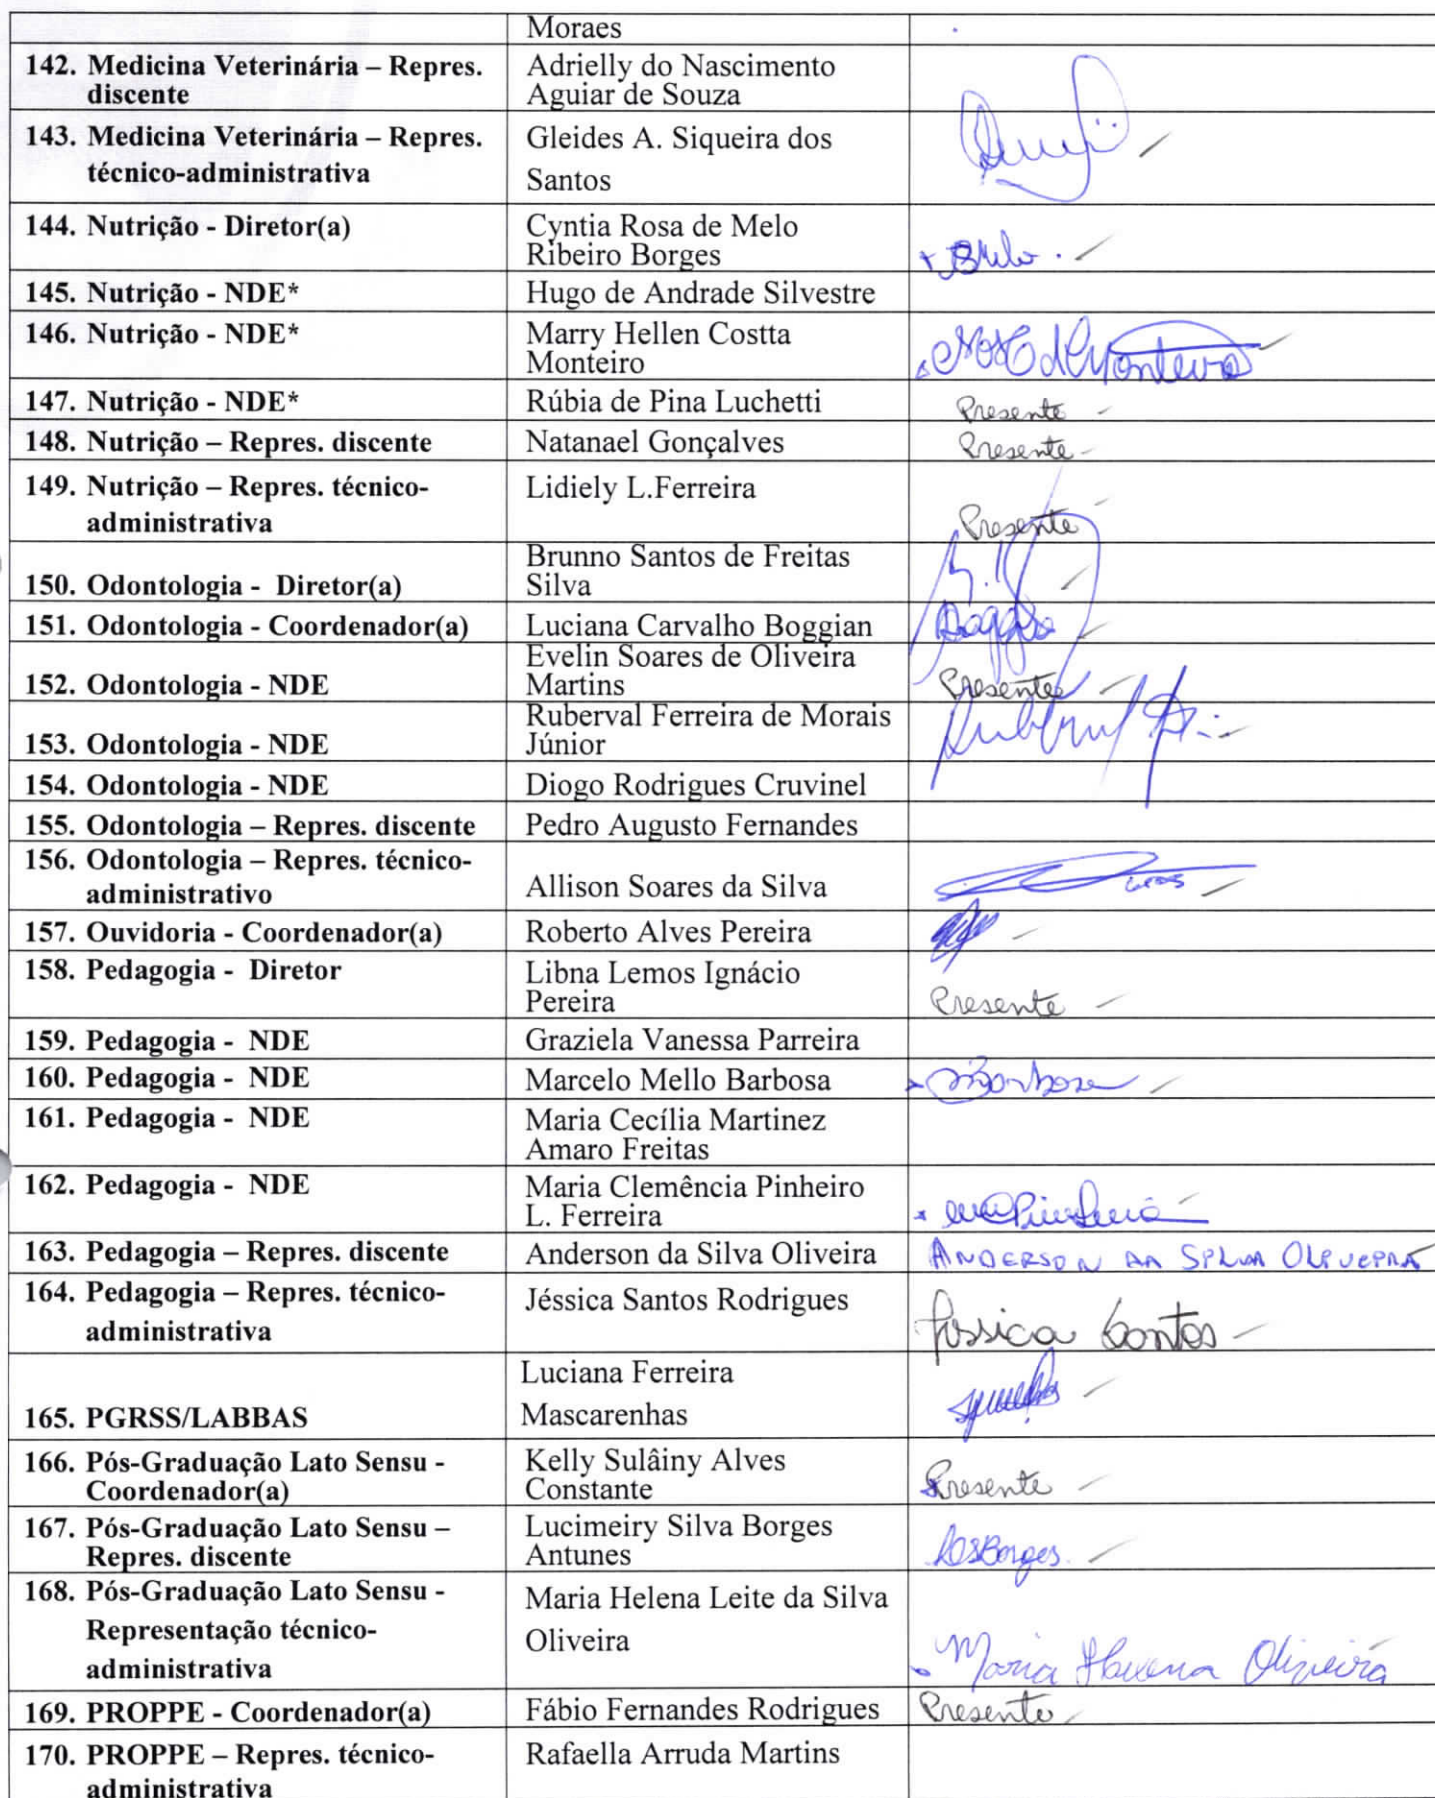 Moraes
142. Medicina Veterinária – Repres. discente Adrielly do Nascimento Aguiar de Souza
143. Medicina Veterinária – Repres. técnico-administrativa Gleides A. Siqueira dos Santos
144. Nutrição - Diretor(a) Cyntia Rosa de Melo Ribeiro Borges
145. Nutrição - NDE* Hugo de Andrade Silvestre
146. Nutrição - NDE* Marry Hellen Costta Monteiro
147. Nutrição - NDE* Rúbia de Pina Luchetti Presente
148. Nutrição – Repres. discente Natanael Gonçalves Presente
149. Nutrição – Repres. técnico-administrativa Lidiely L.Ferreira Presente
150. Odontologia - Diretor(a) Brunno Santos de Freitas Silva
151. Odontologia - Coordenador(a) Luciana Carvalho Boggian
152. Odontologia - NDE Evelin Soares de Oliveira Martins Presente
153. Odontologia - NDE Ruberval Ferreira de Morais Júnior
154. Odontologia - NDE Diogo Rodrigues Cruvinel
155. Odontologia – Repres. discente Pedro Augusto Fernandes
156. Odontologia – Repres. técnico-administrativo Allison Soares da Silva
157. Ouvidoria - Coordenador(a) Roberto Alves Pereira
158. Pedagogia - Diretor Libna Lemos Ignácio Pereira Presente
159. Pedagogia - NDE Graziela Vanessa Parreira
160. Pedagogia - NDE Marcelo Mello Barbosa
161. Pedagogia - NDE Maria Cecília Martinez Amaro Freitas
162. Pedagogia - NDE Maria Clemência Pinheiro L. Ferreira
163. Pedagogia – Repres. discente Anderson da Silva Oliveira ANDERSON DA SILVA OLIVEIRA
164. Pedagogia – Repres. técnico-administrativa Jéssica Santos Rodrigues Jessica Santos
165. PGRSS/LABBAS Luciana Ferreira Mascarenhas
166. Pós-Graduação Lato Sensu - Coordenador(a) Kelly Sulâiny Alves Constante Presente
167. Pós-Graduação Lato Sensu – Repres. discente Lucimeiry Silva Borges Antunes LSBorges
168. Pós-Graduação Lato Sensu - Representação técnico-administrativa Maria Helena Leite da Silva Oliveira Maria Helena Oliveira
169. PROPPE - Coordenador(a) Fábio Fernandes Rodrigues Presente
170. PROPPE – Repres. técnico-administrativa Rafaella Arruda Martins